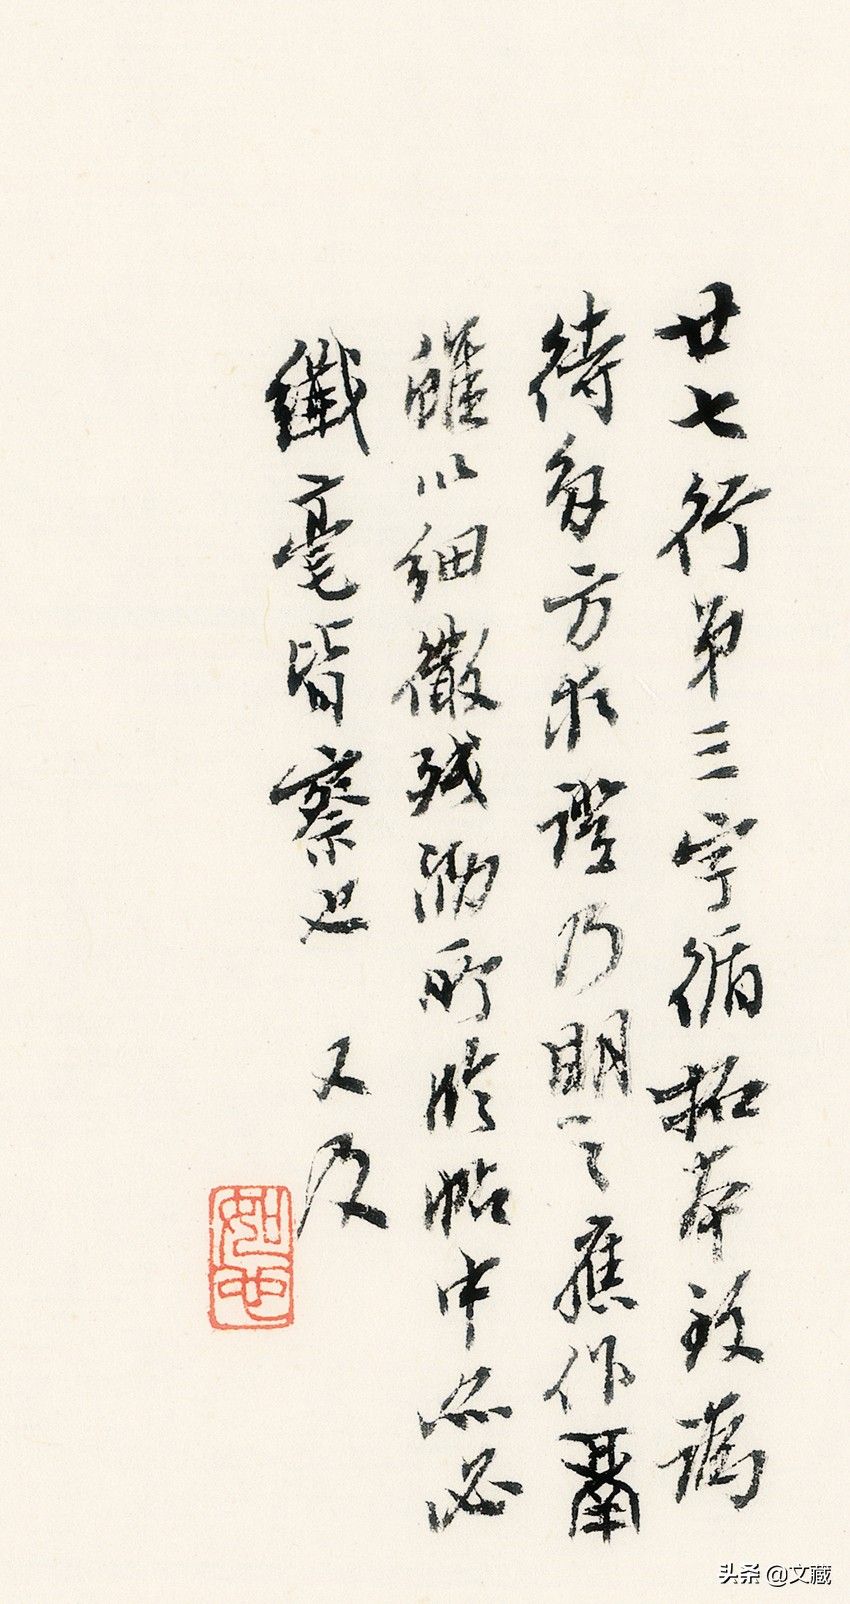 廿七行第三字循拓本致譌
待多方求證乃明之應作
雖以細微殘泐所臨帖中亦必
纖毫皆察也 又及
头条 @文藏